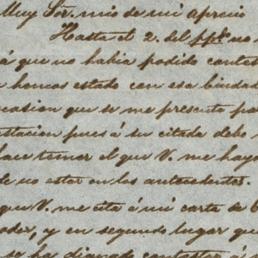 Muy Sor. mio de mi aprecio
Hasta el 2. del ppdo. no
á que no habia podido contes
hemos estado con esa ciudad
ocasion que se me presenta pa
testacion pues á su citada debo
hacer temer el que V. me haya
de no estar en los antecedentes.
que V. me cita á mi carta de
y en segundo lugar que
se ha dignado contestar á